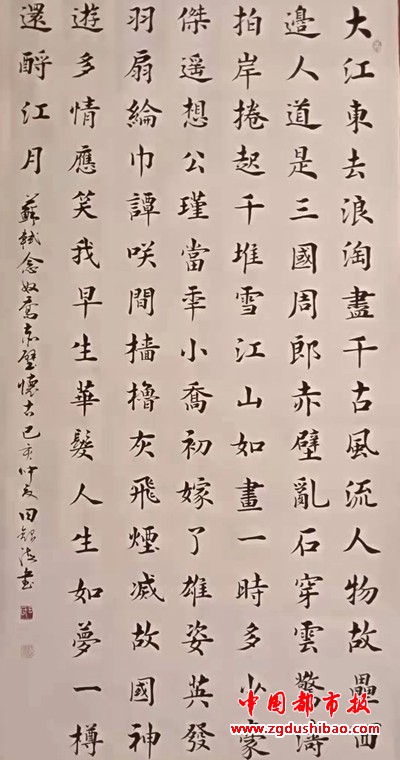 大江東去浪淘盡千古風流人物故壘西
邊人道是三國周郎赤壁亂石穿雲驚濤
拍岸捲起千堆雪江山如畫一時多少豪
傑遥想公瑾當秊小喬初嫁了雄姿英發
羽扇綸巾譚咲間檣櫓灰飛煙滅故國神
遊多情應笑我早生華髮人生如夢一樽
還酹江月
蘇軾念奴嬌赤壁懷古己亥仲夏田書
中国都市报
www.zgdushibao.com